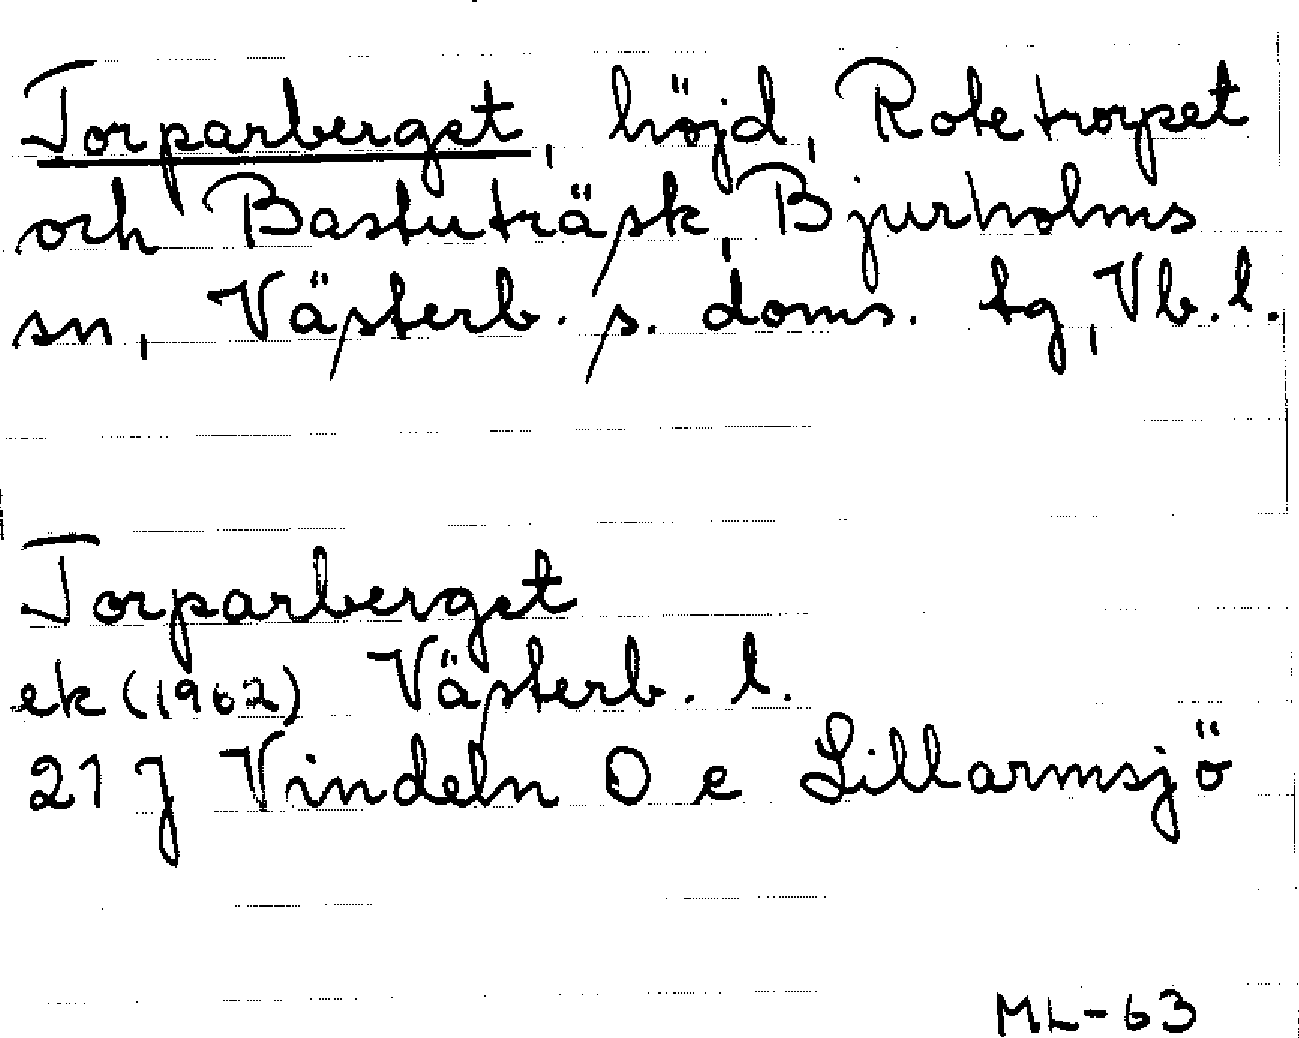 Torparberget, höjd, Rotetrorpet
och Bastuträsk, Bjurholms
sn, Västerb. s. doms. tg, Vb. l.
Torparberget
ek (1962) Västerb. l.
21 J Vindeln 0 e Lillarmsjö
ML-63